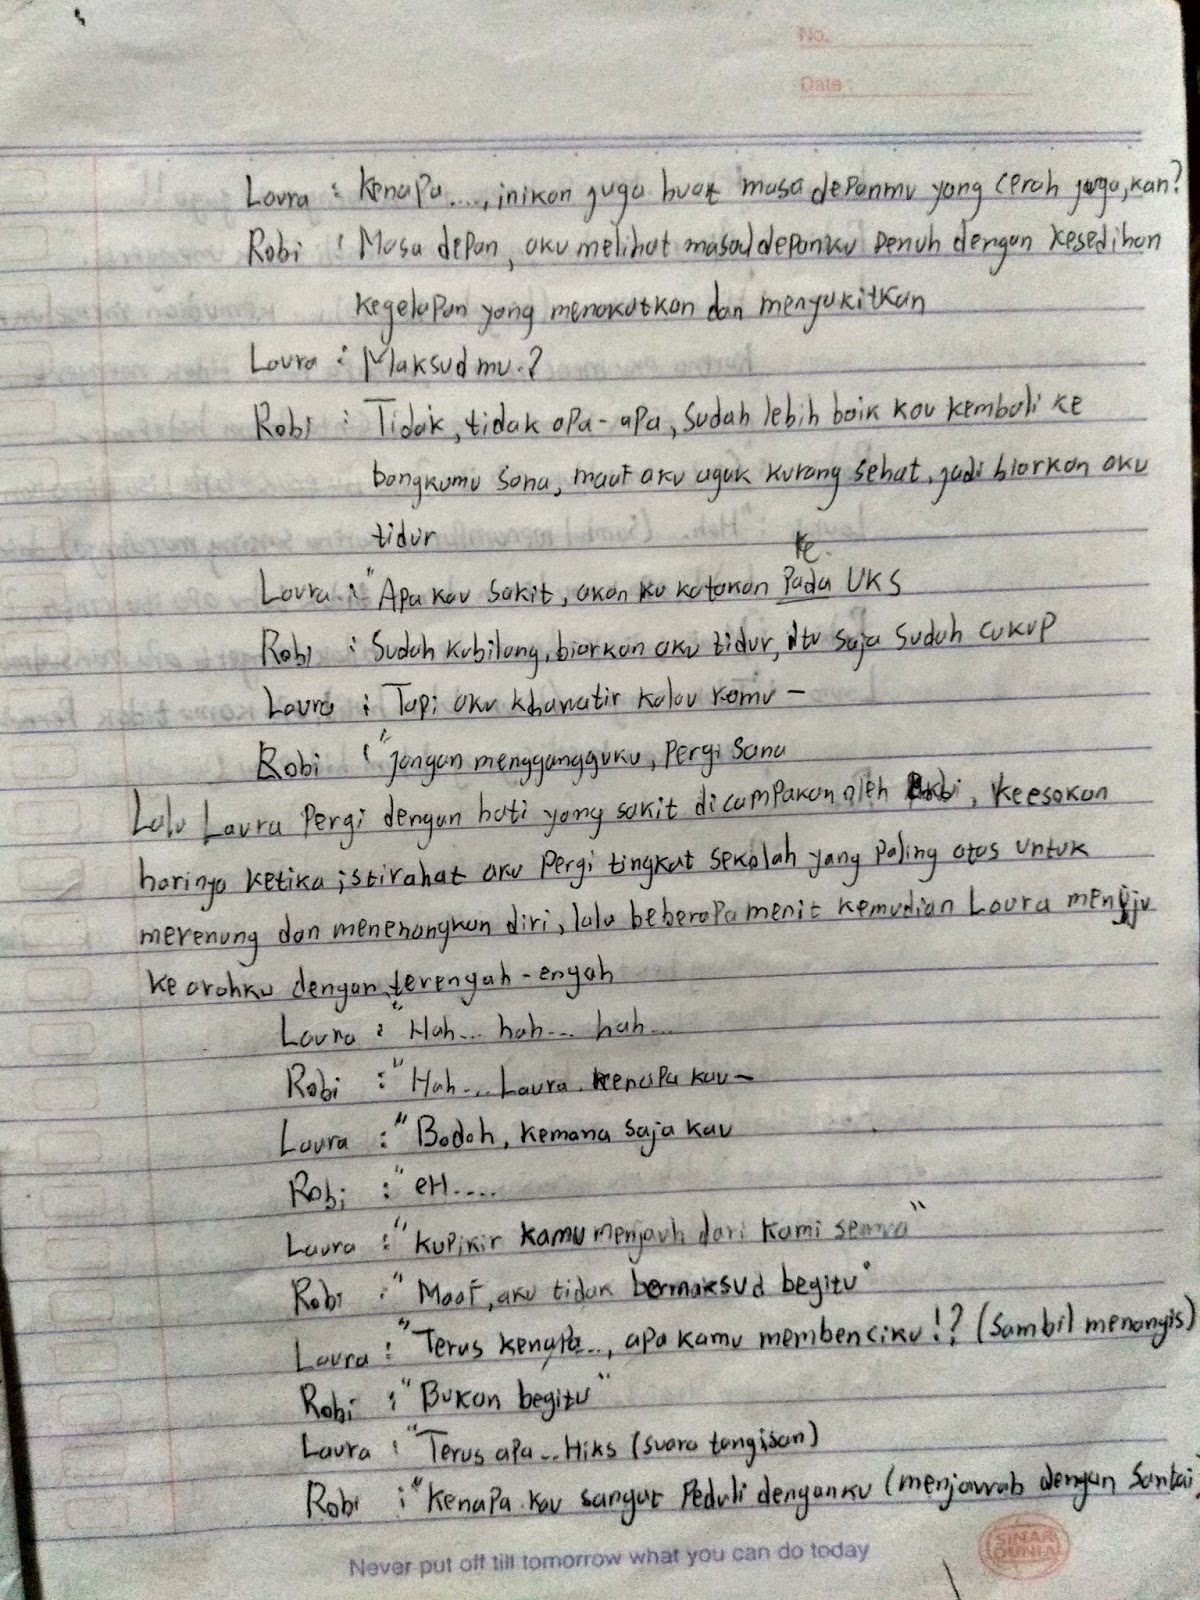 No.
Date :
Laura : Kenapa...., inikan juga buat masa depanmu yang cerah juga, kan?
Robi : Masa depan, aku melihat masa depanku penuh dengan kesedihan
kegelapan yang menakutkan dan menyakitkan
Laura : Maksudmu.?
Robi : Tidak, tidak apa-apa, sudah lebih baik kau kembali ke
bangkumu sana, maaf aku agak kurang sehat, jadi biarkan aku
tidur
ke
Laura : "Apa kau sakit, akan ku katakan pada UKS
Robi : Sudah kubilang, biarkan aku tidur, itu saja sudah cukup
Laura : Tapi aku khawatir kalau kamu -
Robi : "jangan menggangguku, pergi sana
Lalu Laura pergi dengan hati yang sakit dicampakan oleh Robi, keesokan
harinya ketika istirahat aku pergi tingkat sekolah yang paling atas untuk
merenung dan menenangkan diri, lalu beberapa menit kemudian Laura menuju
ke arahku dengan terengah-engah
Laura : "Hah... hah... hah...
Robi : "Hah... Laura kenapa kau -
Laura : "Bodoh, kemana saja kau
Robi : "eH....
Laura : "kupikir kamu menjauh dari kami semua"
Robi : "Maaf, aku tidak bermaksud begitu"
Laura : "Terus kenapa..., apa kamu membenciku!? (Sambil menangis)
Robi : "Bukan begitu"
Laura : "Terus apa... Hiks (suara tangisan)
Robi : "Kenapa kau sangat peduli denganku (menjawab dengan santai)
Never put off till tomorrow what you can do today
SINAR
DUNIA